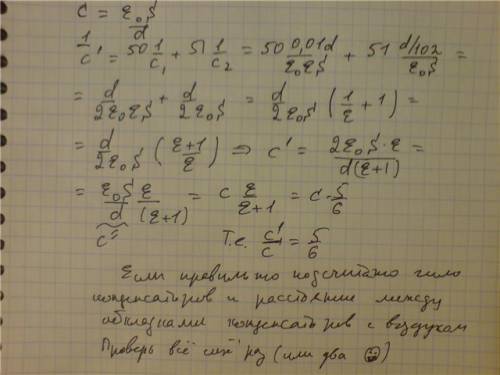 C = ε₀S/d
1/C' = 50 1/C₁ + 51 1/C₂ = 50 0,01d/ε₀εS + 51 d/102/ε₀S =
= d/2ε₀εS + d/2ε₀S = d/2ε₀S (1/ε + 1) =
= d/2ε₀S (ε+1/ε) ⇒ C' = 2ε₀S·ε/d(ε+1) =
= ε₀S/d ε/(ε+1) = C ε/ε+1 = C·5/6
C= Т.е. C'/C = 5/6
Если правильно подсчитано число
конденсаторов и расстояние между
обкладками конденсаторов с воздухом
Проверь всё ещё раз (или два ☺)